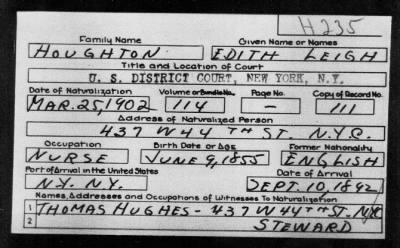 H235
Family Name Given Name or Names
HOUGHTON EDITH LEIGH
Title and Location of Court
U. S. DISTRICT COURT, NEW YORK, N.Y.
Date of Naturalization Volume or Bundle No. Page No. Copy of Record No.
MAR. 25, 1902 114 — 111
Address of Naturalized Person
437 W 44 TH ST. N.Y.C.
Occupation Birth Date or Age Former Nationality
NURSE JUNE 9, 1855 ENGLISH
Port of Arrival in the United States Date of Arrival
N.Y. N.Y. SEPT. 10, 1892
Names, Addresses and Occupations of Witnesses To Naturalization
1 THOMAS HUGHES - 437 W 44 TH ST. NYC
2 STEWARD